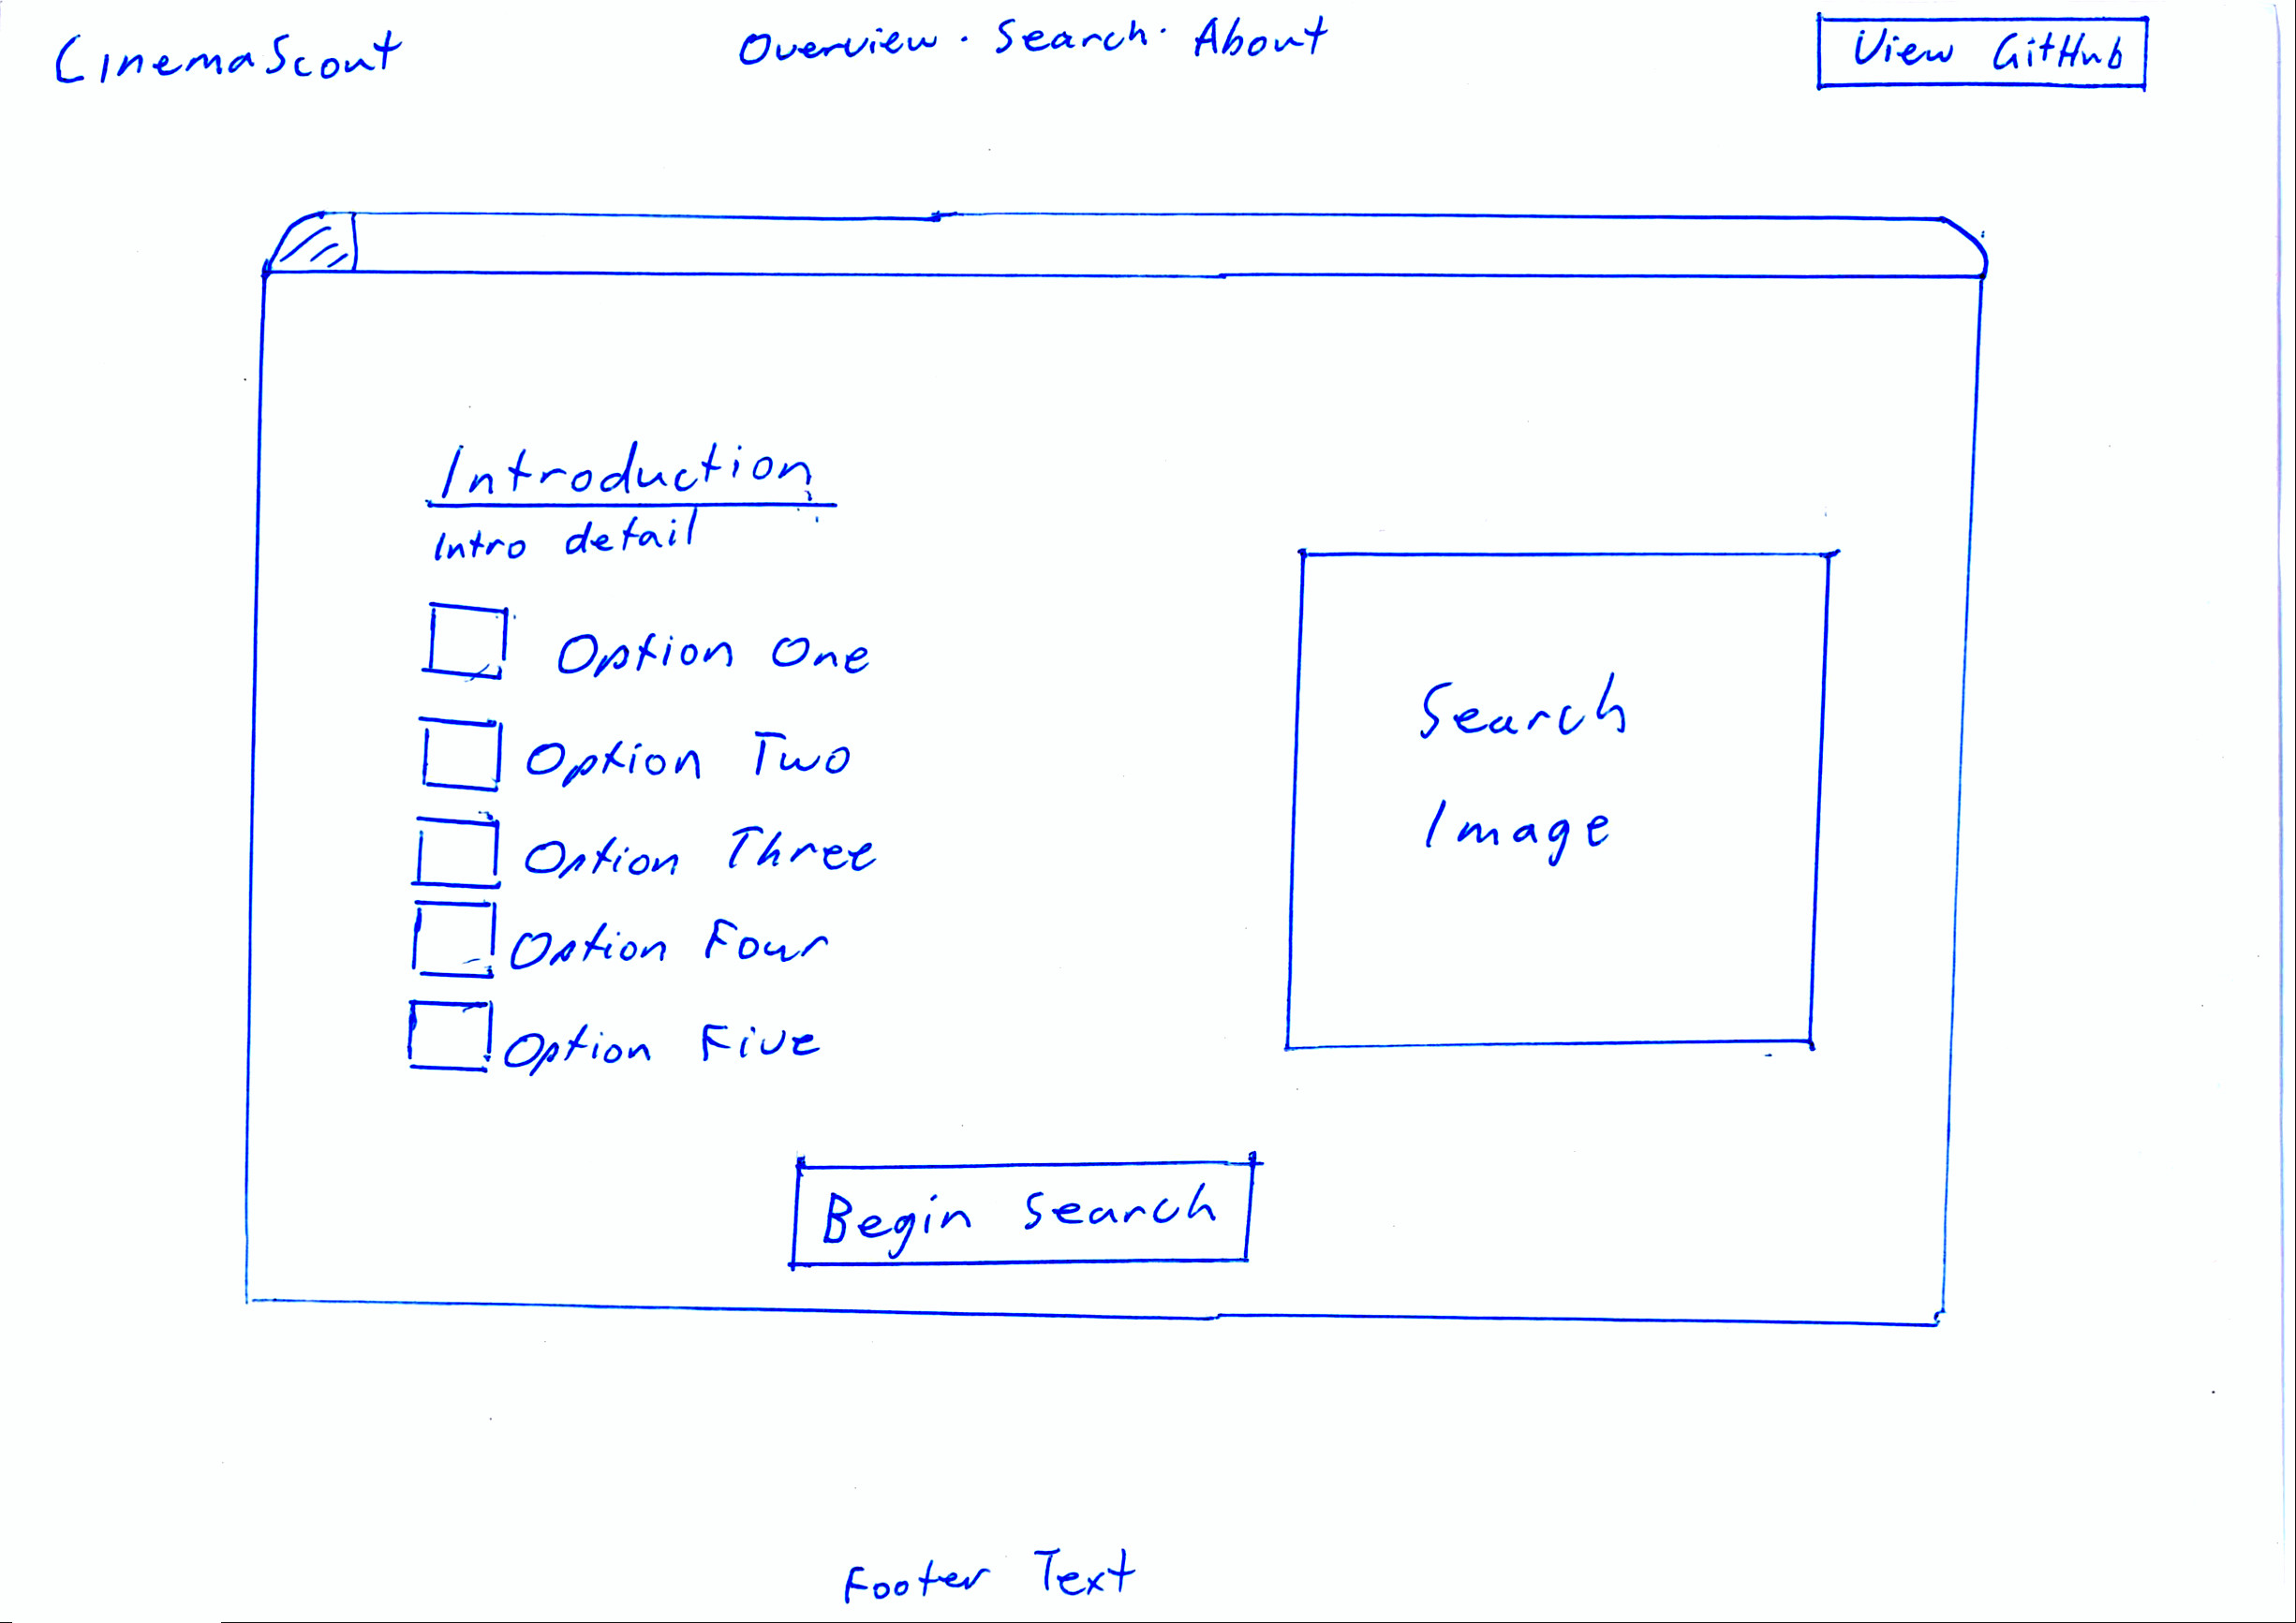 CinemaScout
Overview · Search · About
View GitHub
Introduction
Intro detail
Option One
Option Two
Option Three
Option Four
Option Five
Search
Image
Begin Search
Footer Text